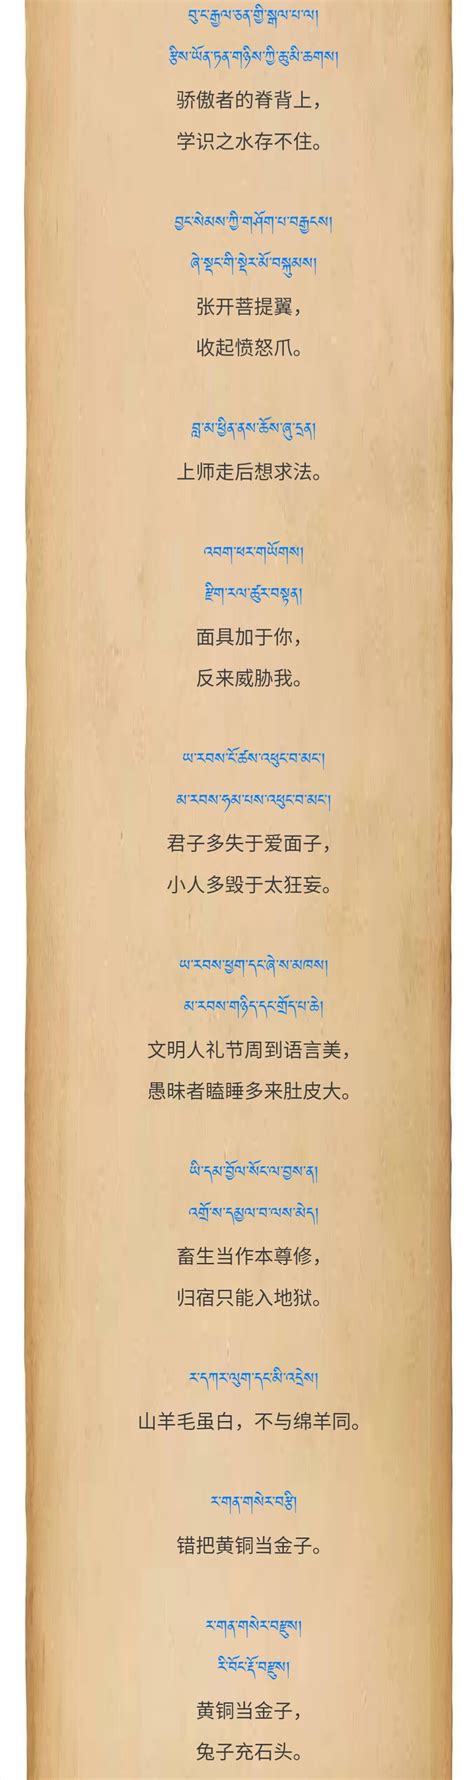 བུང་རྒྱལ་ཅན་གྱི་སྒལ་པ་ལ།
རྩིས་ཡོན་ཏན་གཉིས་ཀྱི་ཆུ་མི་ཆགས།
骄傲者的脊背上，
学识之水存不住。
བྱང་སེམས་ཀྱི་གཤོག་པ་བརྒྱངས།
ཞེ་སྡང་གི་སྡེར་མོ་བསྐུམས།
张开菩提翼，
收起愤怒爪。
བླ་མ་ཕྱིན་ནས་ཆོས་ཞུ་དྲན།
上师走后想求法。
འབག་ཕར་གཡོགས།
རྫིག་རལ་ཚུར་བསྟན།
面具加于你，
反来威胁我。
ཡ་རབས་ངོ་ཚས་འཕུང་བ་མང་།
མ་རབས་ཧམ་པས་འཕུང་བ་མང་།
君子多失于爱面子，
小人多毁于太狂妄。
ཡ་རབས་ཕྱག་དང་ཞེ་ས་མཁས།
མ་རབས་གཉིད་དང་གྲོད་པ་ཆེ།
文明人礼节周到语言美，
愚昧者瞌睡多来肚皮大。
ཡི་དམ་བྱོལ་སོང་ལ་བྱས་ན།
འགྲོ་ས་དམྱལ་བ་ལས་མེད།
畜生当作本尊修，
归宿只能入地狱。
ར་དཀར་ལུག་དང་མི་འདྲེས།
山羊毛虽白，不与绵羊同。
ར་གན་གསེར་བརྩི།
错把黄铜当金子。
ར་གན་གསེར་བརྫུས།
རི་བོང་རྡོ་བརྫུས།
黄铜当金子，
兔子充石头。